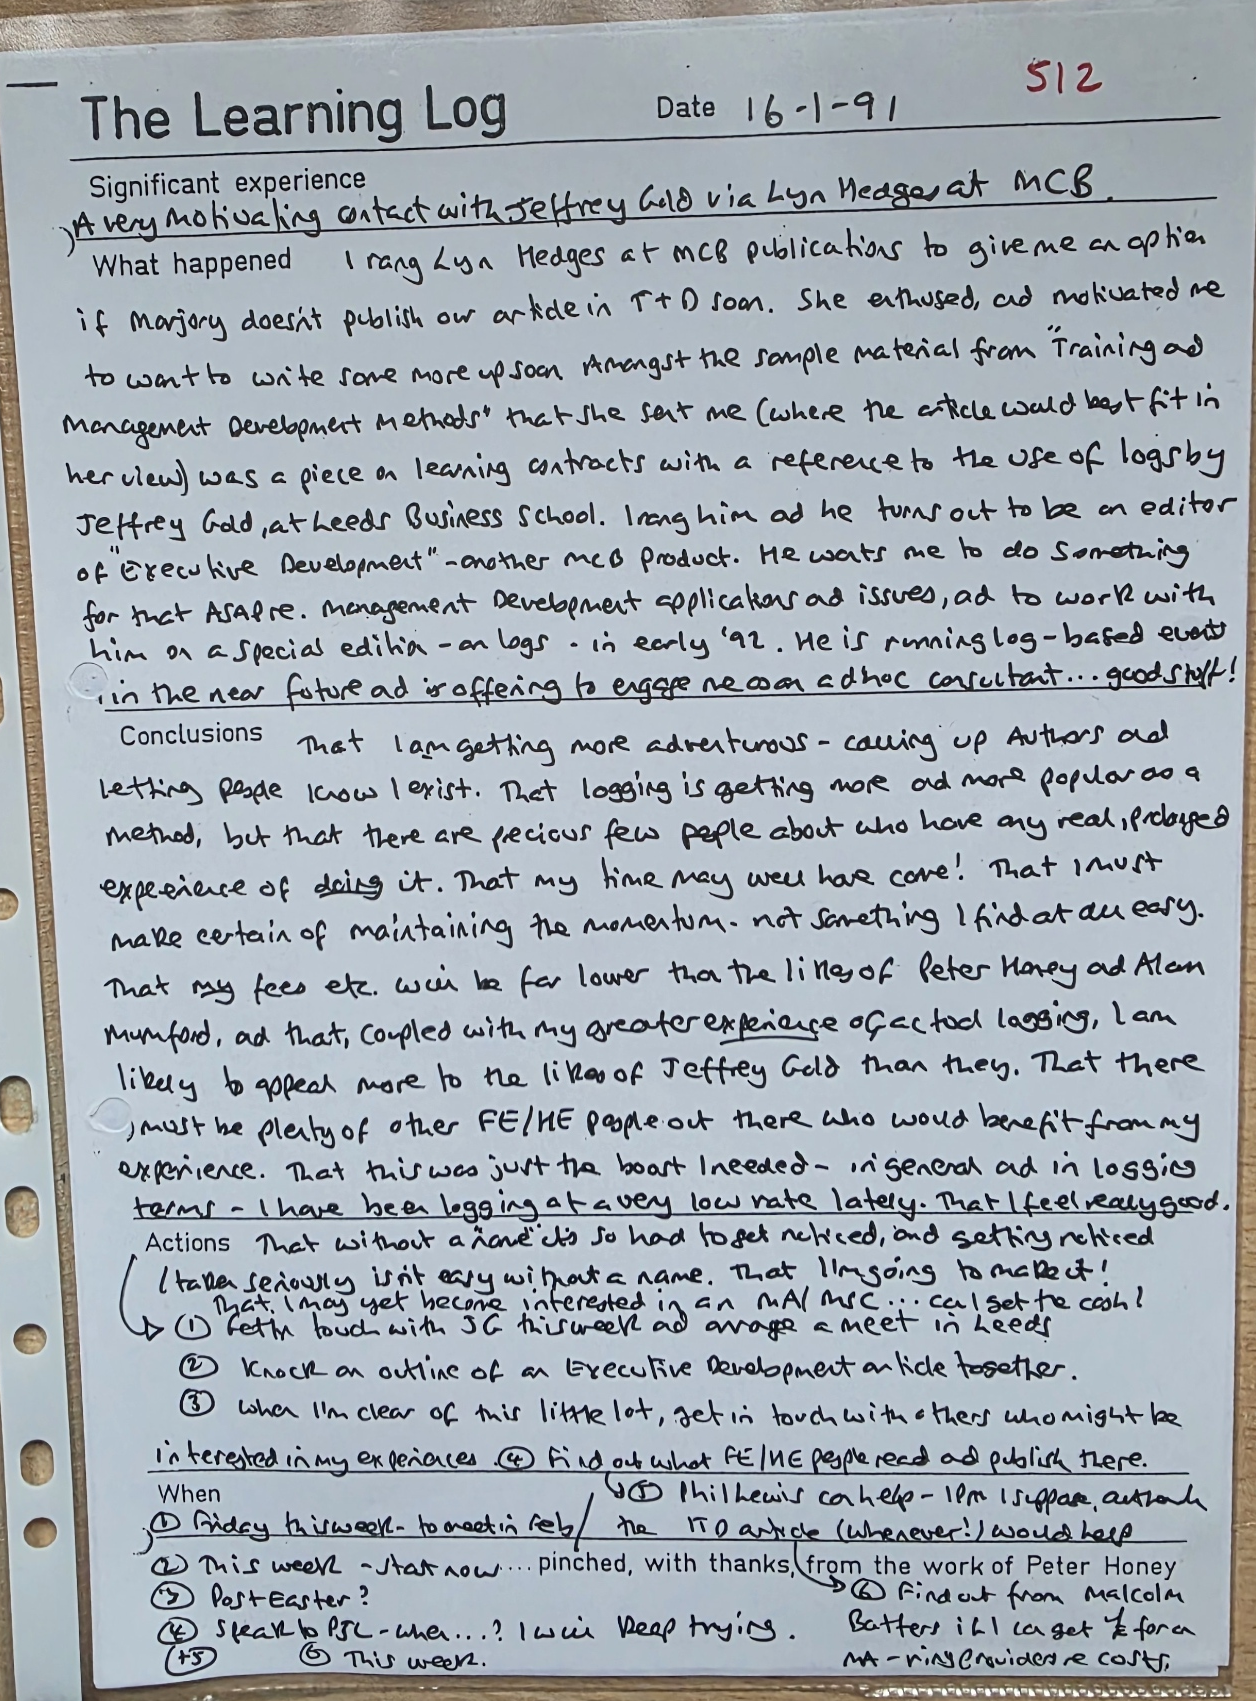 512
The Learning Log Date 16-1-91
Significant experience
A very motivating contact with Jeffrey Gold via Lyn Hedges at MCB.
What happened I rang Lyn Hedges at MCB publications to give me an option
if Marjory doesn't publish our article in T+D soon. She enthused, ad motivated me
to want to write some more up soon. Amongst the sample material from "Training ad
Management Development Methods" that she sent me (where the article would best fit in
her view) was a piece on learning contracts with a reference to the use of logs by
Jeffrey Gold, at Leeds Business School. I rang him ad he turns out to be an editor
of "Executive Development" - another MCB product. He wants me to do something
for that ASAP re. Management Development applications ad issues, ad to work with
him on a special edition - on logs - in early '92. He is running log-based events
in the near future ad is offering to engage me as an adhoc consultant... good stuff!
Conclusions That I am getting more adventurous - calling up Authors ad
letting people know I exist. That logging is getting more ad more popular as a
method, but that there are precious few people about who have any real, prolonged
experience of doing it. That my time may well have come! That I must
make certain of maintaining the momentum - not something I find at all easy.
That my fees etc. will be far lower than the likes of Peter Honey ad Alan
Mumford, ad that, coupled with my greater experience of actual logging, I am
likely to appeal more to the likes of Jeffrey Gold than they. That there
must be plenty of other FE/HE people out there who would benefit from my
experience. That this was just the boost I needed - in general ad in logging
terms - I have been logging at a very low rate lately. That I feel really good.
Actions That without a "name" it's so hard to get noticed, and getting noticed
/taken seriously isn't easy without a name. That I'm going to make it!
That I may yet become interested in an MA/MSc... can I get the cash?
① Get in touch with JG this week ad arrange a meet in Leeds
② Knock an outline of an Executive Development article together.
③ When I'm clear of this little lot, get in touch with others who might be
interested in my experiences. ④ Find out what FE/HE people read ad publish there.
When ⑤ Phil Lewis can help - IPM I suppose,
① Friday this week - to meet in Feb/ the ITD article (whenever!) would help
② This week - start now.... pinched, with thanks, from the work of Peter Honey
③ Post Easter? ⑥ Find out from Malcolm
④ Speak to PJL - when...? I will keep trying. Batters if I can get £ for an
+5 ⑥ This week. MA - ring providers re costs.